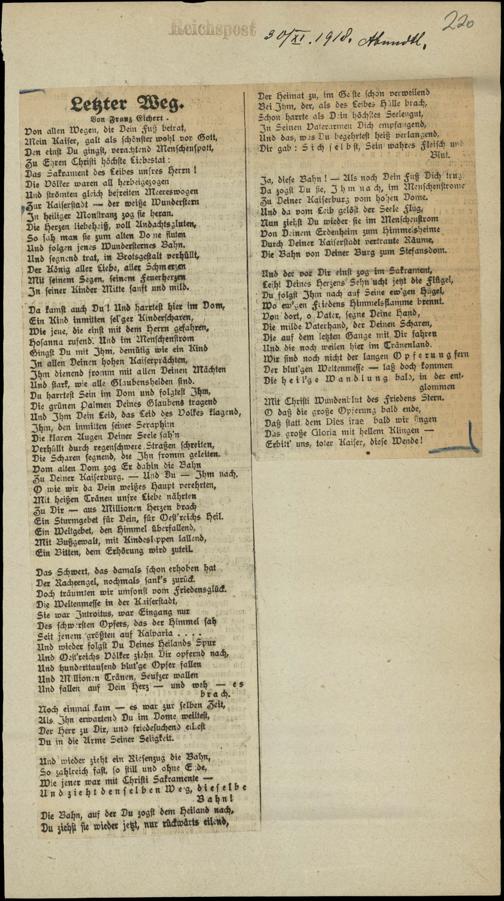 Reichspost
30/XI. 1918. Abendbl.
220
Letzter Weg.
Von Franz Eichert.
Von allen Wegen, die Dein Fuß betrat,
Mein Kaiser, galt als schönster wohl vor Gott,
Den einst Du gingst, verachtend Menschenspott,
Zu Ehren Christi höchste Liebestat:
Das Sakrament des Leibes unsres Herrn!
Die Völker waren all herbeigezogen
Und strömten gleich befreiten Meereswogen
Zur Kaiserstadt — der weiße Wunderstern
In heiliger Monstranz zog sie heran.
Die Herzen liebeheiß, voll Andachtsgluten,
So sah man sie zum alten Dome fluten
Und folgen jenes Wundersternes Bahn.
Und segnend trat, in Brotsgestalt verhüllt,
Der König aller Liebe, aller Schmerzen
Mit seinem Segen, seinem Feuerherzen
In seiner Kinder Mitte sanft und mild.
Da kamst auch Du! Und harrtest hier im Dom,
Ein Kind inmitten sel'ger Kinderscharen,
Wie jene, die einst mit dem Herrn gefahren,
Hosanna rufend. Und im Menschenstrom
Gingst Du mit Ihm, demütig wie ein Kind
In allen Deinen hohen Kaiserprächten,
Ihm dienend fromm mit allen Deinen Mächten
Und stark, wie alle Glaubenshelden sind.
Du harrtest Sein im Dom und folgtest Ihm,
Die grünen Palmen Deines Glaubens tragend
Und Ihm Dein Leid, das Leid des Volkes klagend,
Ihm, den inmitten seiner Seraphim
Die klaren Augen Deiner Seele sah'n
Verhüllt durch regenschwere Straßen schreiten,
Die Scharen segnend, die Ihn fromm geleiten.
Vom alten Dom zog Er dahin die Bahn
Zu Deiner Kaiserburg. — Und Du — Ihm nach.
O wie wir da Dein weißes Haupt verehrten,
Mit heißen Tränen unsre Liebe nährten
Zu Dir — aus Millionen Herzen brach
Ein Sturmgebet für Dein, für Oest'reichs Heil.
Ein Weltgebet, den Himmel überfallend,
Mit Bußgewalt, mit Kindeslippen lallend,
Ein Bitten, dem Erhörung wird zuteil.
Das Schwert, das damals schon erhoben hat
Der Racheengel, nochmals sank's zurück.
Doch träumten wir umsonst vom Friedensglück.
Die Weltenmesse in der Kaiserstadt,
Sie war Introitus, war Eingang nur
Des schwersten Opfers, das der Himmel sah
Seit jenem größten auf Kalvaria . . . .
Und wieder folgst Du Deines Heilands Spur
Und Oest'reichs Völker ziehn Dir opfernd nach,
Und hunderttausend blut'ge Opfer fallen
Und Millionen Tränen, Seufzer wallen
Und fallen auf Dein Herz — und weh — es
brach.
Noch einmal kam — es war zur selben Zeit,
Als Ihn erwartend Du im Dome weiltest,
Der Herr zu Dir, und friedesuchend eiltest
Du in die Arme Seiner Seligkeit.
Und wieder zieht ein Riesenzug die Bahn,
So zahlreich fast, so still und ohne Ende,
Wie jener war mit Christi Sakramente —
Und zieht denselben Weg, dieselbe
Bahn!
Die Bahn, auf der Du zogst dem Heiland nach,
Du ziehst sie wieder jetzt, nur rückwärts eilend,
Der Heimat zu, im Geiste schon verweilend
Bei Ihm, der, als des Leibes Hülle brach,
Schon harrte als Dein höchstes Seelengut,
In Seinen Vaterarmen Dich empfangend,
Und das, was Du begehrtest heiß verlangend,
Dir gab: Sich selbst, Sein wahres Fleisch und
Blut.
Ja, diese Bahn! — Als noch Dein Fuß Dich trug
Da zogst Du sie, Ihm nach, im Menschenstrome
Zu Deiner Kaiserburg vom hohen Dome.
Und da vom Leib gelöst der Seele Flug,
Nun ziehst Du wieder sie im Menschenstrom
Von Deinem Erdenheim zum Himmelsheime
Durch Deiner Kaiserstadt vertraute Räume,
Die Bahn von Deiner Burg zum Stefansdom.
Und der vor Dir einst zog im Sakrament,
Leiht Deines Herzens Sehnsucht jetzt die Flügel,
Du folgst Ihm nach auf Seine ew'gen Hügel,
Wo ew'gen Friedens Himmelsflamme brennt.
Von dort, o Vater, segne Deine Hand,
Die milde Vaterhand, der Deinen Scharen,
Die auf dem letzten Gange mit Dir fahren
Und die noch weilen hier im Tränenland.
Wir sind noch nicht der langen Opferung fern
Der blut'gen Weltenmesse — laß doch kommen
Die heil'ge Wandlung bald, in der ent-
glommen
Mit Christi Wundenblut des Friedens Stern.
O daß die große Opferung bald ende,
Daß statt dem Dies irae bald wir singen
Das große Gloria mit hellem Klingen —
Erbitt' uns, toter Kaiser, diese Wende!